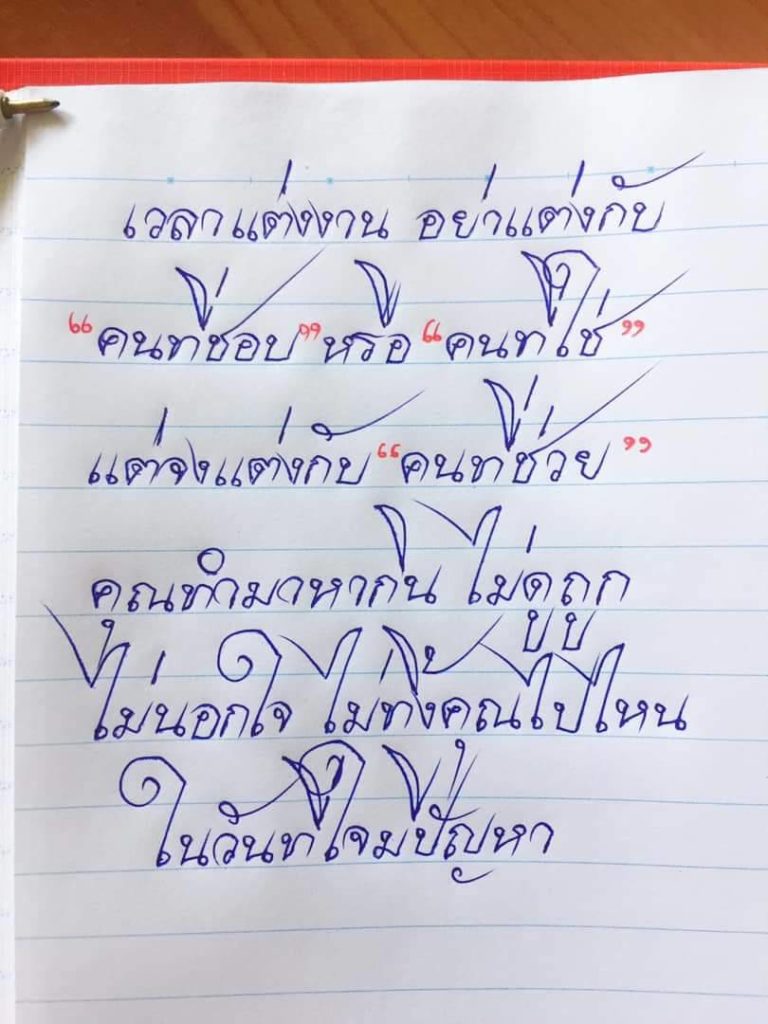 เวลาแต่งงาน อย่าแต่งกับ
“คนที่ชอบ” หรือ “คนที่ใช่”
แต่จงแต่งกับ “คนที่ช่วย”
คุณทำมาหากิน ไม่ดูถูก
ไม่นอกใจ ไม่ทิ้งคุณไปไหน
ในวันที่ใจมีปัญหา